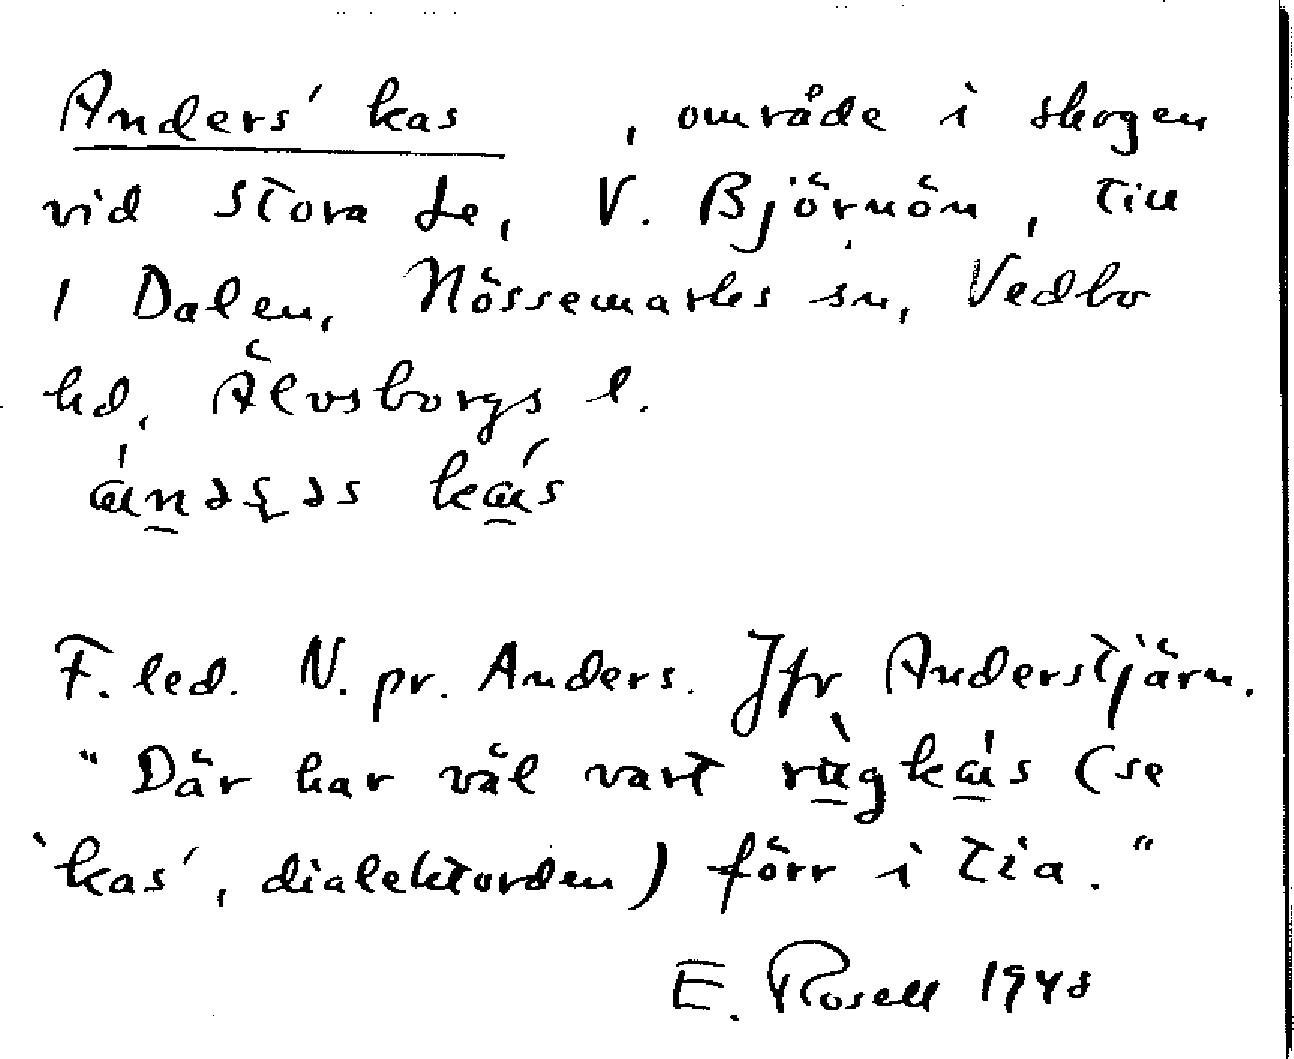 Anders' kas , område i skogen
vid Stora Le, V. Björnön, till
1 Dalen, Nössemarks sn, Vedbo
hd, Älvsborgs l.
kás
F. led. N. pr. Anders. Jfr Anderstjärn.
"Där har väl vart rùgkás (se
'kas', dialektorden) förr i tia."
E. Rosell 1948